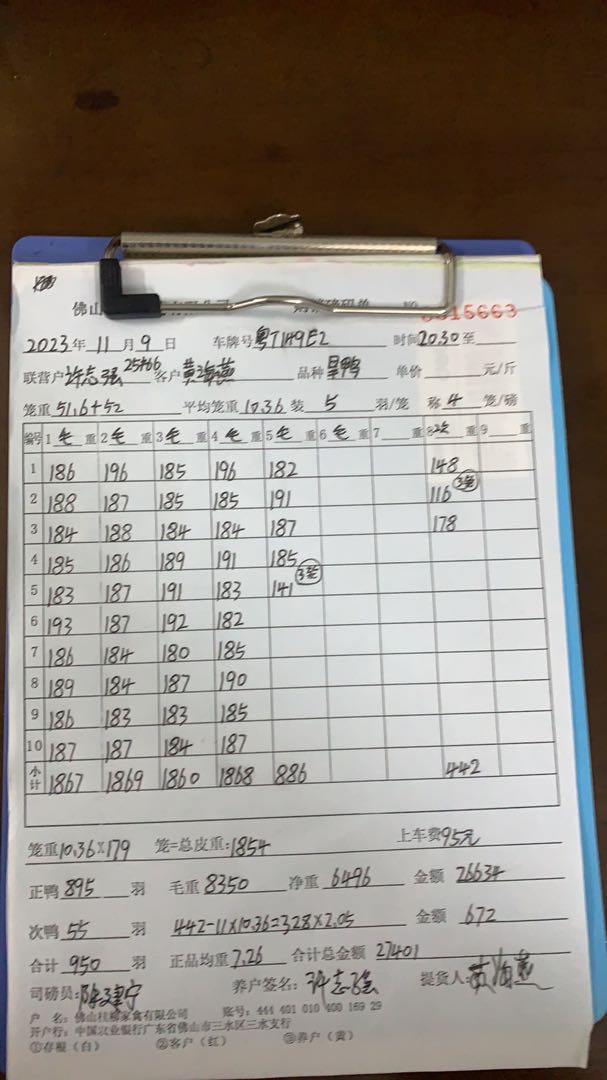 佛山
NO 0315663
2023年 11月 9日 车牌号粤T1149E2 时间20.30至
联营户许志强25466 客户黄海燕 品种 单价 元/斤
笼重 51.6+52 平均笼重 10.36 装 5 羽/笼 称 4 笼/磅
编号 1 毛 重 2 毛 重 3 毛 重 4 毛 重 5 毛 重 6 毛 重 7 重 8 次 重 9 重
1 186 196 185 196 182 148
2 188 187 185 185 191 116 3笼
3 184 188 184 184 187 178
4 185 186 189 191 185
5 183 187 191 183 141 3笼
6 193 187 192 182
7 186 184 180 185
8 189 184 187 190
9 186 183 183 185
10 187 187 184 187
小计 1867 1869 1860 1868 886 442
笼重10.36×179 笼=总皮重:1854 上车费95元
正鸭 895 羽 毛重 8350 净重 6496 金额 26634
次鸭 55 羽 442-11×10.36=328×2.05 金额 672
合计 950 羽 正品均重 7.26 合计总金额 27401
司磅员: 养户签名:许志强 提货人:黄海燕
户 名:佛山桂柳家禽有限公司 账号:444 401 010 400 169 29
开户行:中国农业银行广东省佛山市三水区三水支行
①存根(白) ②客户(红) ③养户(黄)